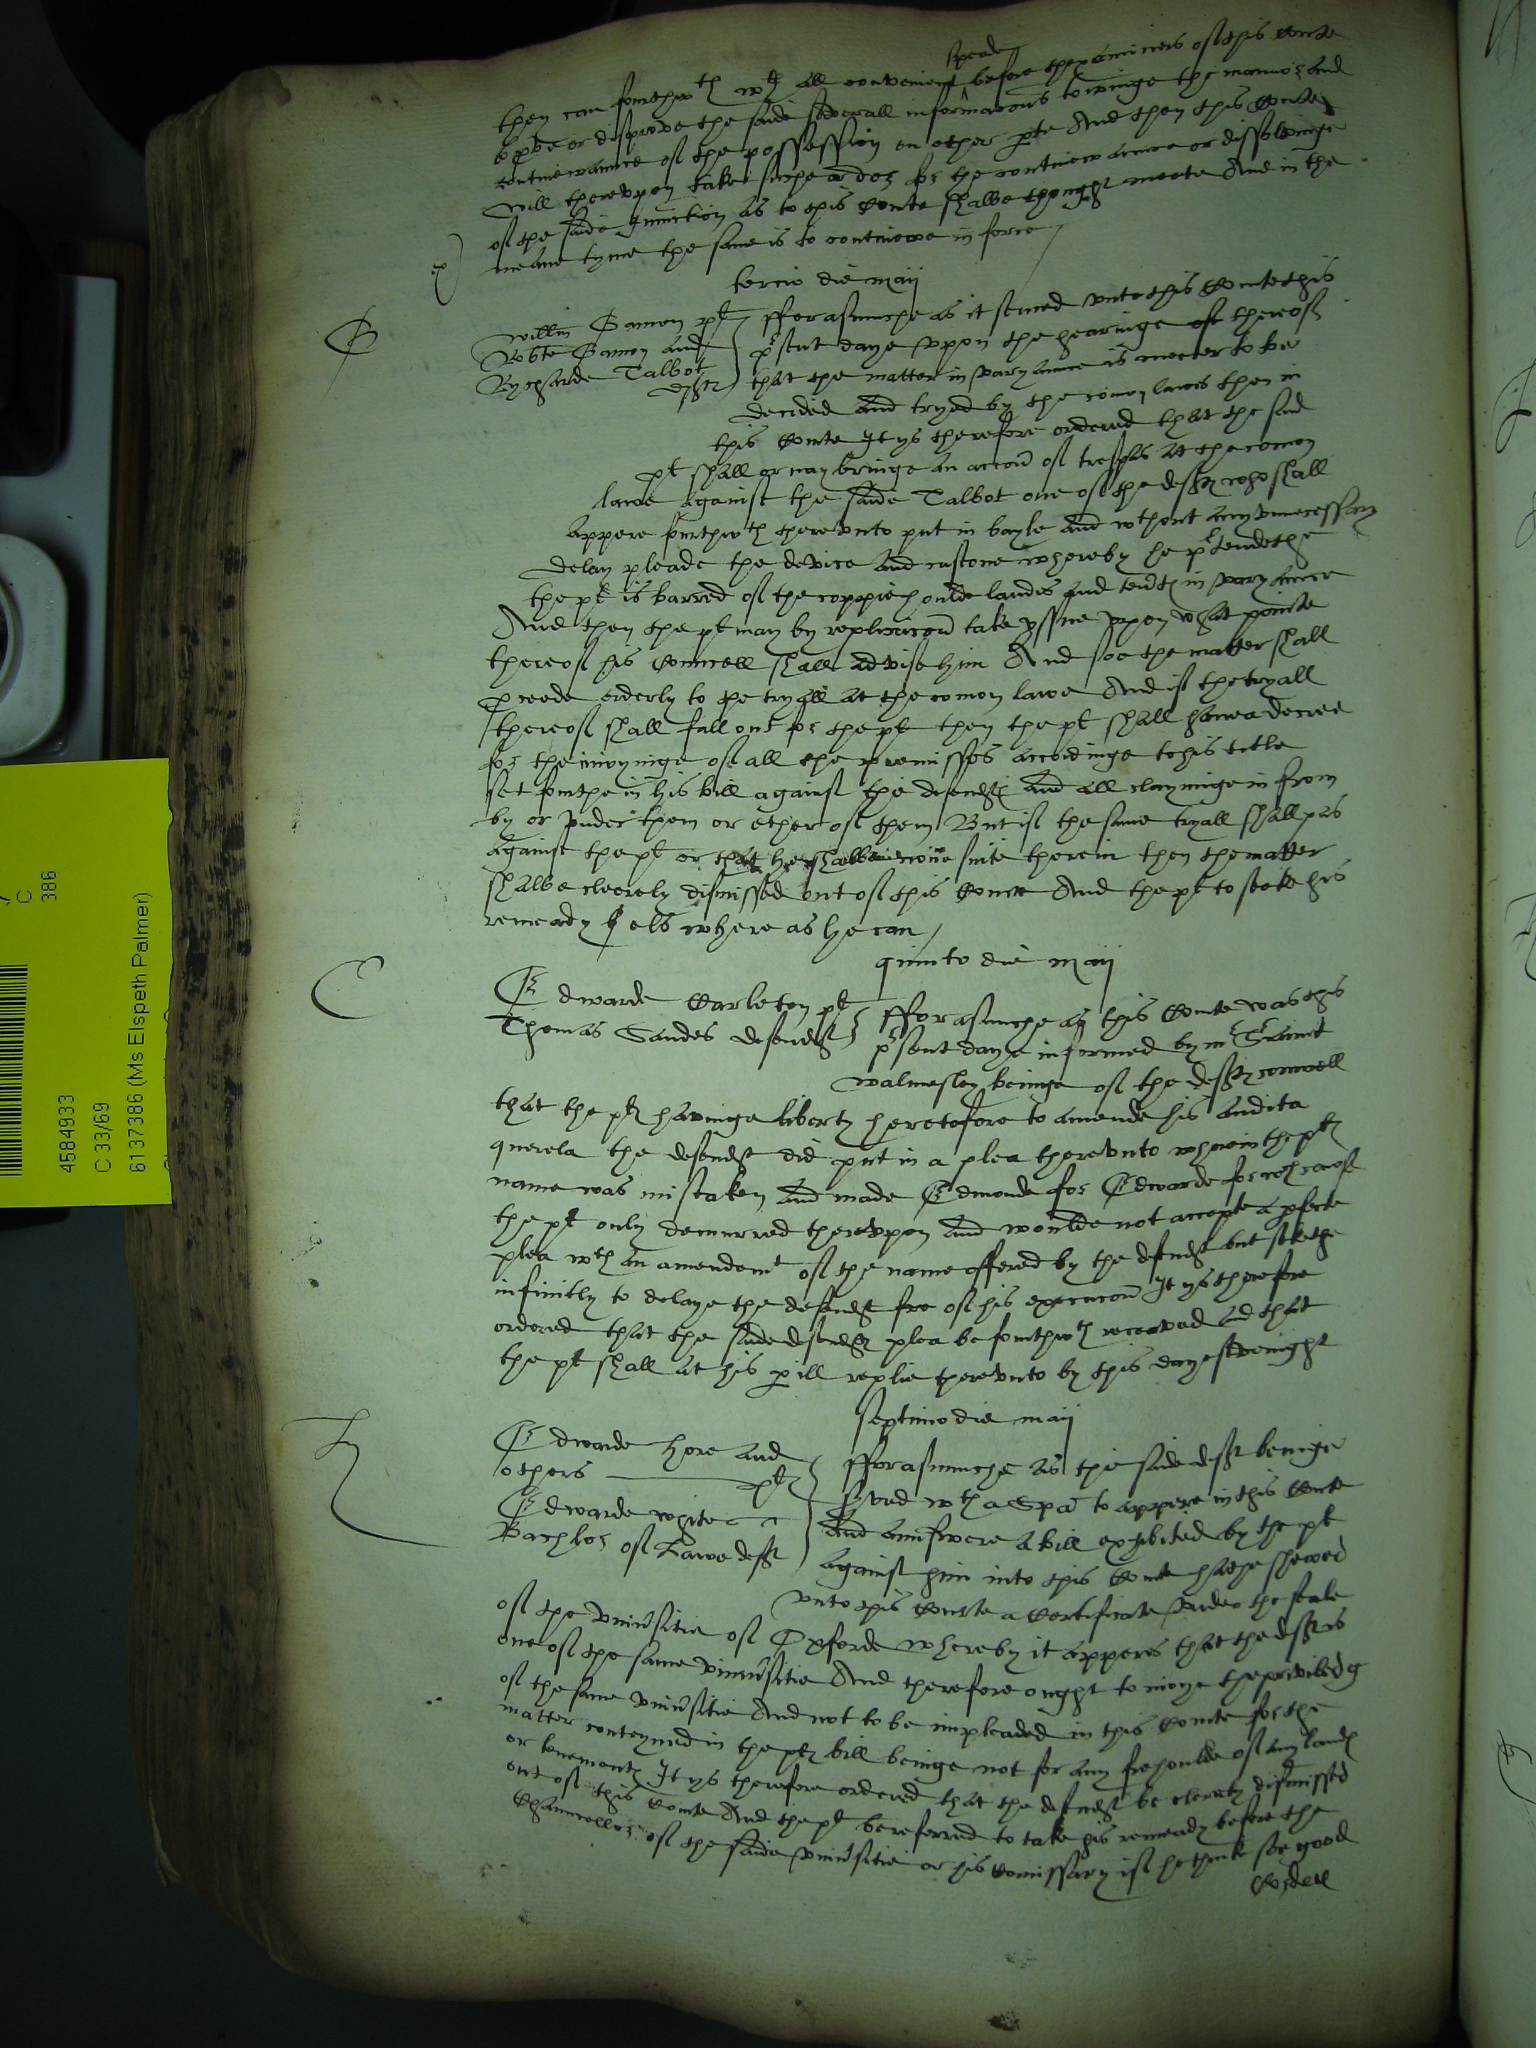 speade
then can fourthwth wth all convenient before thexaminers of this Courte
to pve or disprove the saide severall informacons towchinge the mannor and
contynewaunce of the possession on ether pte And then this Courte
will therevpon take suche order for the contynewaunce or dissolvinge
of the saide Iniunction as to this Courte shalbe thought meete And in the
meane tyme the same is to contynewe in force
ex
tercio die maij
G
Willm Gamon plt
Robte Gamon and
Rycharde Talbot
defts
fforasmuche as it semed vnto this Courte this
psent daye vpon the hearinge of thereof
that the matter in varyaunce is meeter to be
decided and tryed by the comon lawes then in
this Courte It ys therefore ordered that the said
plt shall or may bringe an accon of trespas at the comon
lawe against the saide Talbot one of the defts who shall
appere fourthwth therevnto put in bayle and wthout any vnnecessary
delay pleade the device and custome whereby he ptendethe
the plt is barred of the coppiehoulde landes and tents in varyaunce
And then the plt may by replicacon take yssue vpon what pointe
thereof his Councell shall advise him And soe the matter shall
pceede orderly to the tryall at the comon lawe And if the tryall
thereof shall fall out for the plt then the plt shall have a decree
for the inioyinge of all the premisses accordinge to his title
set fourthe in his bill against the defendts and all clayminge in from
by or vnder them or ether of them But if the same tryall shall pas
against the plt or that he shalbe nonsuite therein then the matter
shalbe cleerely dismissed out of this Courte And the plt to seeke his
remeady els where as he can
quinto die maij
C
Edwarde Carleton plt
Thomas Sandes defendt
fforasmuche as this Courte was this
psent daye informed by mr Sriaunt
Walmesley beinge of the defts councell
that the plt havinge liberty heretofore to amende his audita
querela the defendt did put in a plea therevnto wherein the plts
name was mistaken and made Edmonde for Edwarde for wch cause
the plt only demurred therevpon and woulde not accepte a pfecte
plea wth an amendemt of the name offered by the defendt but seketh
infinitly to delaye the defendt fro of his execucon It ys therefore
ordered that the saide defendts plea be fourthwth receaved and that
the plt shall at his pill replie therevnto by this daye sevenight
septimo die maij
H
Edwarde Hore and
others plts
Edwarde White
Bachylor of Lawe deft
fforasmuche as the saide deft beinge
served wth a Spa to appere in this Courte
And aunswere a bill exhibited by the plt
against him into this Courte hathe shewed
vnto this Courte a Certificate vnder the seale
of the vniusitie of Oxforde whereby it apperes that the deft is
one of the same vniusitie And therefore ought to inioye the priviledg
of the same vniusitie And not to be impleaded in this Courte for the
matter conteyned in the plts bill beinge not for any frehoulde of any lands
or tenements It ys therefore ordered that the defendt be cleerely dismissed
out of this Courte And the plt be referred to take his remeady before the
Chauncellor of the saide vniusitie or his Comissary if he think soe good
Cordell
4584933
C 33/69
6137386 (Ms Elspeth Palmer)
C
386